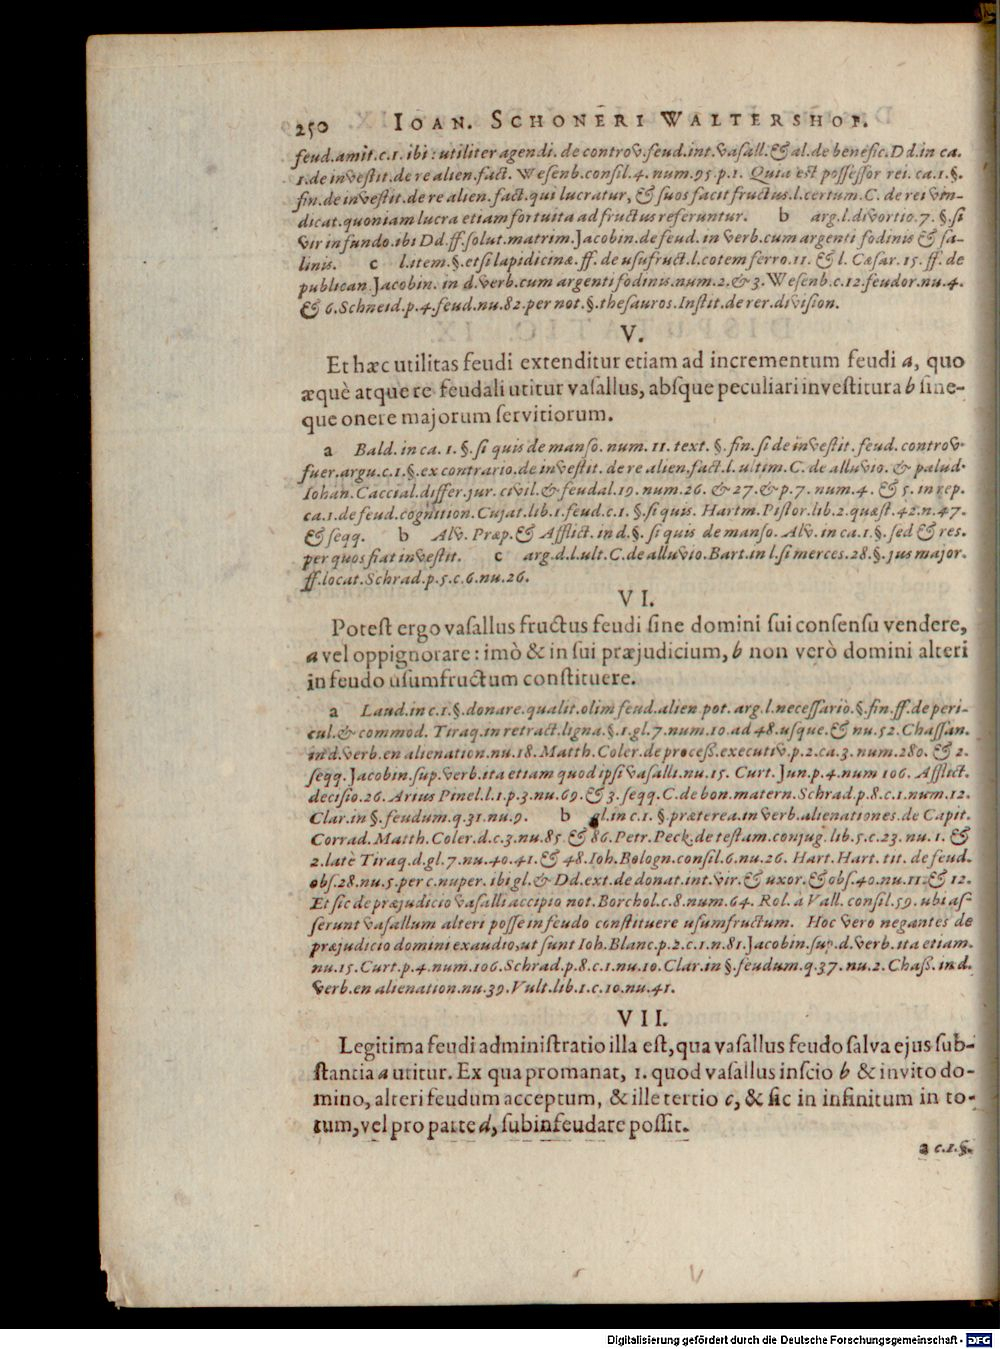 250 IOAN. SCHONERI WALTERSHOF.
feud.amit.c.1. ibi: utiliter agendi. de controv.feud.int.vasall.& al.de benefic.Dd.in ca.
1.de investit.de re alien.fact. Wesenb.consil.4. num.95.p.1. Quia est possessor rei. ca.1.§.
fin.de investit.de re alien.fact.qui lucratur, & suos facit fructus.l.certum.C. de rei vin-
dicat.quoniam lucra etiam fortuita ad fructus referuntur. b arg.l.divortio.7. §.si
vir in fundo.ibi Dd.ff.solut.matrim.Jacobin.de feud. in verb.cum argenti fodinis & sa-
linis. c l.item.§.etsi lapidicinæ.ff. de usufruct.l.cotem ferro.11. & l. Cæsar. 15. ff. de
publican.Jacobin. in d.verb.cum argenti fodinis.num.2.& 3. Wesenb.c.12.feudor.nu.4.
& 6.Schneid.p.4.feud.nu.82.per not.§.thesauros.Instit.de rer.division.
V.
Et hæc utilitas feudi extenditur etiam ad incrementum feudi a, quo
æquè atque re feudali utitur vasallus, absque peculiari investitura b sine-
que onere majorum servitiorum.
a Bald. in ca. 1. §. si quis de manso. num. 11. text. §. fin. si de investit. feud. controv.
fuer.argu.c.1.§.ex contrario.de investit. de re alien.fact.l. ultim. C. de alluvio. & palud.
Iohan.Caccial.differ.jur. civil.& feudal.19. num.26. & 27.& p.7. num.4. & 5. in rep.
ca.1.de feud.cognition.Cujat.lib.1.feud.c.1. §.si quis. Hartm.Pistor.lib.2.quæst.42.n.47.
& seqq. b Alv. Præp.& Afflict. in d.§. si quis de manso. Alv. in ca.1.§.sed & res.
per quos fiat investit. c arg.d.l.ult.C.de alluvio.Bart.in l.si merces.28.§.jus major.
ff.locat.Schrad.p.5.c.6.nu.26.
VI.
Potest ergo vasallus fructus feudi sine domini sui consensu vendere,
a vel oppignorare: imò & in sui præjudicium, b non verò domini alteri
in feudo usumfructum constituere.
a Laud.in c.1.§.donare.qualit.olim feud.alien.pot. arg.l.necessario.§.fin.ff.de peri-
cul.& commod. Tiraq.in retract.ligna.§.1.gl.7.num.10.ad 48.usque.& nu.52.Chassan.
in d.verb.en alienation.nu.18.Matth.Coler.de proceß.executiv.p.2.ca.3.num.280. & 2.
seqq.Jacobin.sup.verb.ita etiam quod ipsi vasalli.nu.15. Curt. Jun.p.4.num 106. Afflict.
decisio.26.Arius Pinel.l.1.p.3.nu.69.& 3.seqq.C.de bon.matern.Schrad.p.8.c.1.num.12.
Clar.in §.feudum.q.31.nu.9. b gl.in c.1. §.præterea.in verb.alienationes.de Capit.
Corrad.Matth.Coler.d.c.3.nu.85.& 86.Petr.Peck.de testam.conjug.lib.5.c.23. nu.1. &
2.latè Tiraq.d.gl.7.nu.40.41.& 48.Ioh.Bologn.consil.6.nu.26. Hart.Hart. tit. de feud.
obs.28.nu.5.per c.nuper. ibi gl.& Dd.ext.de donat.int.vir.& uxor.& obs.40.nu.11.& 12.
Et sic de præjudicio vasalli accipio not.Borchol.c.8.num.64. Rol. à Vall. consil.59. ubi as-
serunt vasallum alteri posse in feudo constituere usumfructum. Hoc vero negantes de
præjudicio domini exaudio, ut sunt Ioh.Blanc.p.2.c.1.n.81.Jacobin.sup.d.verb.ita etiam.
nu.15.Curt.p.4.num.106.Schrad.p.8.c.1.nu.10.Clar.in §.feudum.q.37. nu.2.Chaß.in d.
verb.en alienation.nu.39.Vult.lib.1.c.10.nu.41.
VII.
Legitima feudi administratio illa est, qua vasallus feudo salva ejus sub-
stantia a utitur. Ex qua promanat, 1. quod vasallus inscio b & invito do-
mino, alteri feudum acceptum, & ille tertio c, & sic in infinitum in to-
tum, vel pro parte d, subinfeudare possit.
a c.1.§.
Digitalisierung gefördert durch die Deutsche Forschungsgemeinschaft - DFG